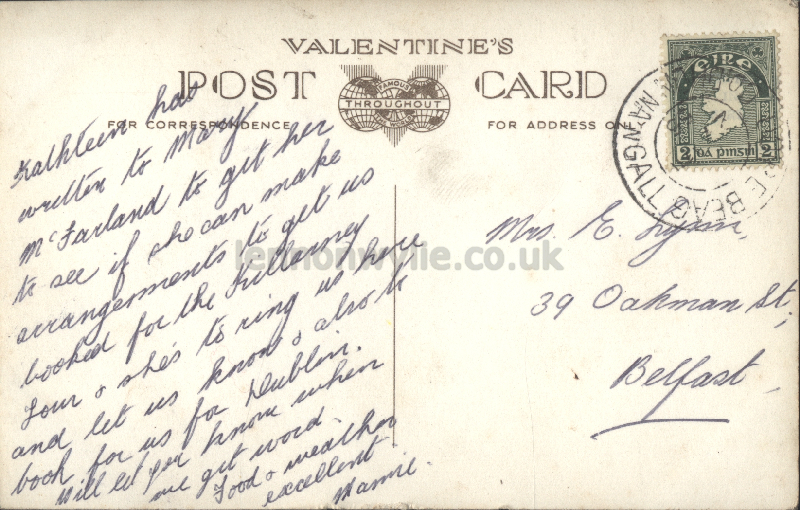 VALENTINE'S
POST CARD
FAMOUS
THROUGHOUT
THE WORLD
FOR CORRESPONDENCE
FOR ADDRESS ON
Kathleen has
written to Mary
McFarland to get her
to see if she can make
arrangements to get us
booked for the Killarney
Tour & she's to ring us here
and let us know & also to
book for us for Dublin.
Will let you know when
we get word.
Food & weather
excellent
Mamie.
Mrs. E. Lynn,
39 Oakman St,
Belfast,
éire
2 pinsin 2
BEAG
NA NGALL
lennonwylie.co.uk